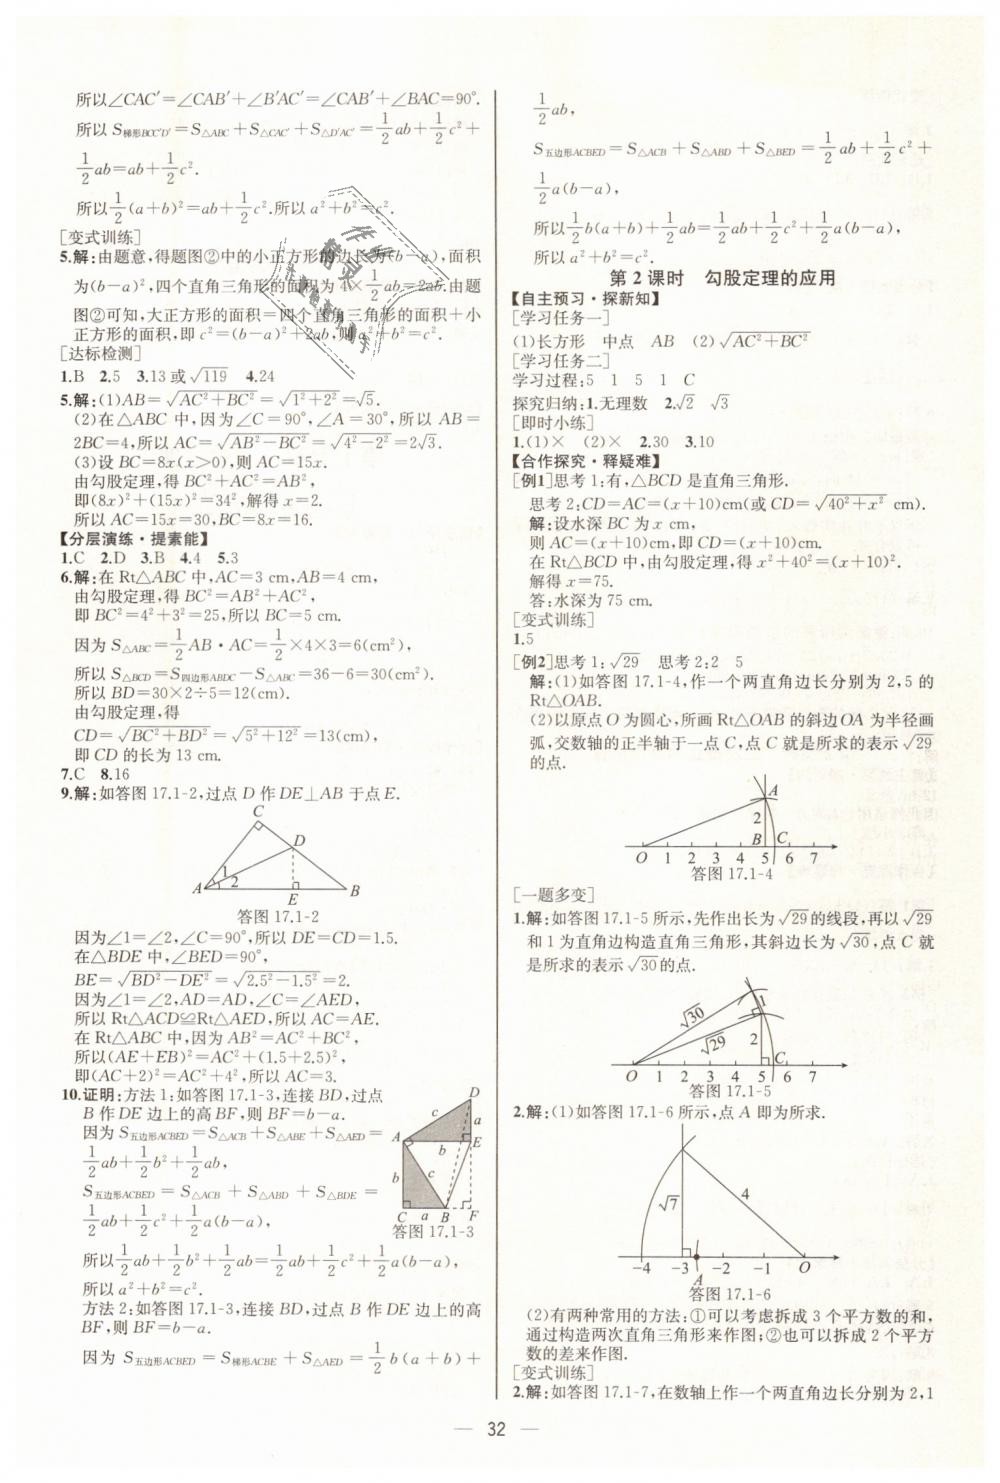 所以∠CAC′=∠CAB′+∠B′AC′=∠CAB′+∠BAC=90°.
所以 S梯形BCC′D′=S△ABC+S△CAC′+S△D′AC′=1/2ab+1/2c²+
1/2ab=ab+1/2c².
所以1/2(a+b)²=ab+1/2c².所以 a²+b²=c².
[变式训练]
5.解:由题意,得题图②中的小正方形的边长为(b-a),面积
为(b-a)²,四个直角三角形的面积为 4×1/2ab=2ab.由题
图②可知,大正方形的面积=四个直角三角形的面积+小
正方形的面积,即 c²=(b-a)²+2ab,则 a²+b²=c².
[达标检测]
1.B 2.5 3.13 或√119 4.24
5.解:(1)AB=√AC²+BC²=√1²+2²=√5.
(2)在△ABC 中,因为∠C=90°,∠A=30°,所以 AB=
2BC=4,所以 AC=√AB²-BC²=√4²-2²=2√3.
(3)设 BC=8x(x>0),则 AC=15x.
由勾股定理,得 BC²+AC²=AB²,
即(8x)²+(15x)²=34²,解得 x=2.
所以 AC=15x=30,BC=8x=16.
【分层演练·提素能】
1.C 2.D 3.B 4.4 5.3
6.解:在 Rt△ABC 中,AC=3 cm,AB=4 cm,
由勾股定理,得 BC²=AB²+AC²,
即 BC²=4²+3²=25,所以 BC=5 cm.
因为 S△ABC=1/2AB·AC=1/2×4×3=6(cm²),
所以 S△BCD=S四边形ABDC-S△ABC=36-6=30(cm²).
所以 BD=30×2÷5=12(cm).
由勾股定理,得
CD=√BC²+BD²=√5²+12²=13(cm),
即 CD 的长为 13 cm.
7.C 8.16
9.解:如答图 17.1-2,过点 D 作 DE⊥AB 于点 E.
C
D
1
2
A
E
B
答图 17.1-2
因为∠1=∠2,∠C=90°,所以 DE=CD=1.5.
在△BDE 中,∠BED=90°,
BE=√BD²-DE²=√2.5²-1.5²=2.
因为∠1=∠2,AD=AD,∠C=∠AED,
所以 Rt△ACD≌Rt△AED,所以 AC=AE.
在 Rt△ABC 中,因为 AB²=AC²+BC²,
所以(AE+EB)²=AC²+(1.5+2.5)²,
即(AC+2)²=AC²+4²,所以 AC=3.
10.证明:方法 1:如答图 17.1-3,连接 BD,过点
B 作 DE 边上的高 BF,则 BF=b-a.
因为 S五边形ACBED=S△ACB+S△ABE+S△AED=
1/2ab+1/2b²+1/2ab,
S五边形ACBED=S△ACB+S△ABD+S△BDE=
1/2ab+1/2c²+1/2a(b-a),
D
c
a
A
E
b
b
c
C a B F
答图 17.1-3
所以1/2ab+1/2b²+1/2ab=1/2ab+1/2c²+1/2a(b-a),
所以 a²+b²=c².
方法 2:如答图 17.1-3,连接 BD,过点 B 作 DE 边上的高
BF,则 BF=b-a.
因为 S五边形ACBED=S梯形ACBE+S△AED=1/2b(a+b)+
1/2ab,
S五边形ACBED=S△ACB+S△ABD+S△BED=1/2ab+1/2c²+
1/2a(b-a),
所以1/2b(a+b)+1/2ab=1/2ab+1/2c²+1/2a(b-a),
所以 a²+b²=c².
第 2 课时 勾股定理的应用
【自主预习·探新知】
[学习任务一]
(1)长方形 中点 AB (2)√AC²+BC²
[学习任务二]
学习过程:5 1 5 1 C
探究归纳:1.无理数 2.√2 √3
[即时小练]
1.(1)× (2)× 2.30 3.10
【合作探究·释疑难】
[例1]思考 1:有,△BCD 是直角三角形.
思考 2:CD=AC=(x+10)cm(或 CD=√40²+x² cm).
解:设水深 BC 为 x cm,
则 AC=(x+10)cm,即 CD=(x+10)cm.
在 Rt△BCD 中,由勾股定理,得 x²+40²=(x+10)².
解得 x=75.
答:水深为 75 cm.
[变式训练]
1.5
[例2]思考 1:√29 思考 2:2 5
解:(1)如答图 17.1-4,作一个两直角边长分别为 2,5 的
Rt△OAB.
(2)以原点 O 为圆心,所画 Rt△OAB 的斜边 OA 为半径画
弧,交数轴的正半轴于一点 C,点 C 就是所求的表示√29
的点.
A
2
B C
O 1 2 3 4 5 6 7
答图 17.1-4
[一题多变]
1.解:如答图 17.1-5 所示,先作出长为√29的线段,再以√29
和 1 为直角边构造直角三角形,其斜边长为√30,点 C 就
是所求的表示√30的点.
√30
1
√29
2
C
O 1 2 3 4 5 6 7
答图 17.1-5
2.解:(1)如答图 17.1-6 所示,点 A 即为所求.
√7
4
-4 -3 -2 -1 O
A
答图 17.1-6
(2)有两种常用的方法:①可以考虑拆成 3 个平方数的和,
通过构造两次直角三角形来作图;②也可以拆成 2 个平方
数的差来作图.
[变式训练]
2.解:如答图 17.1-7,在数轴上作一个两直角边长分别为 2,1
— 32 —